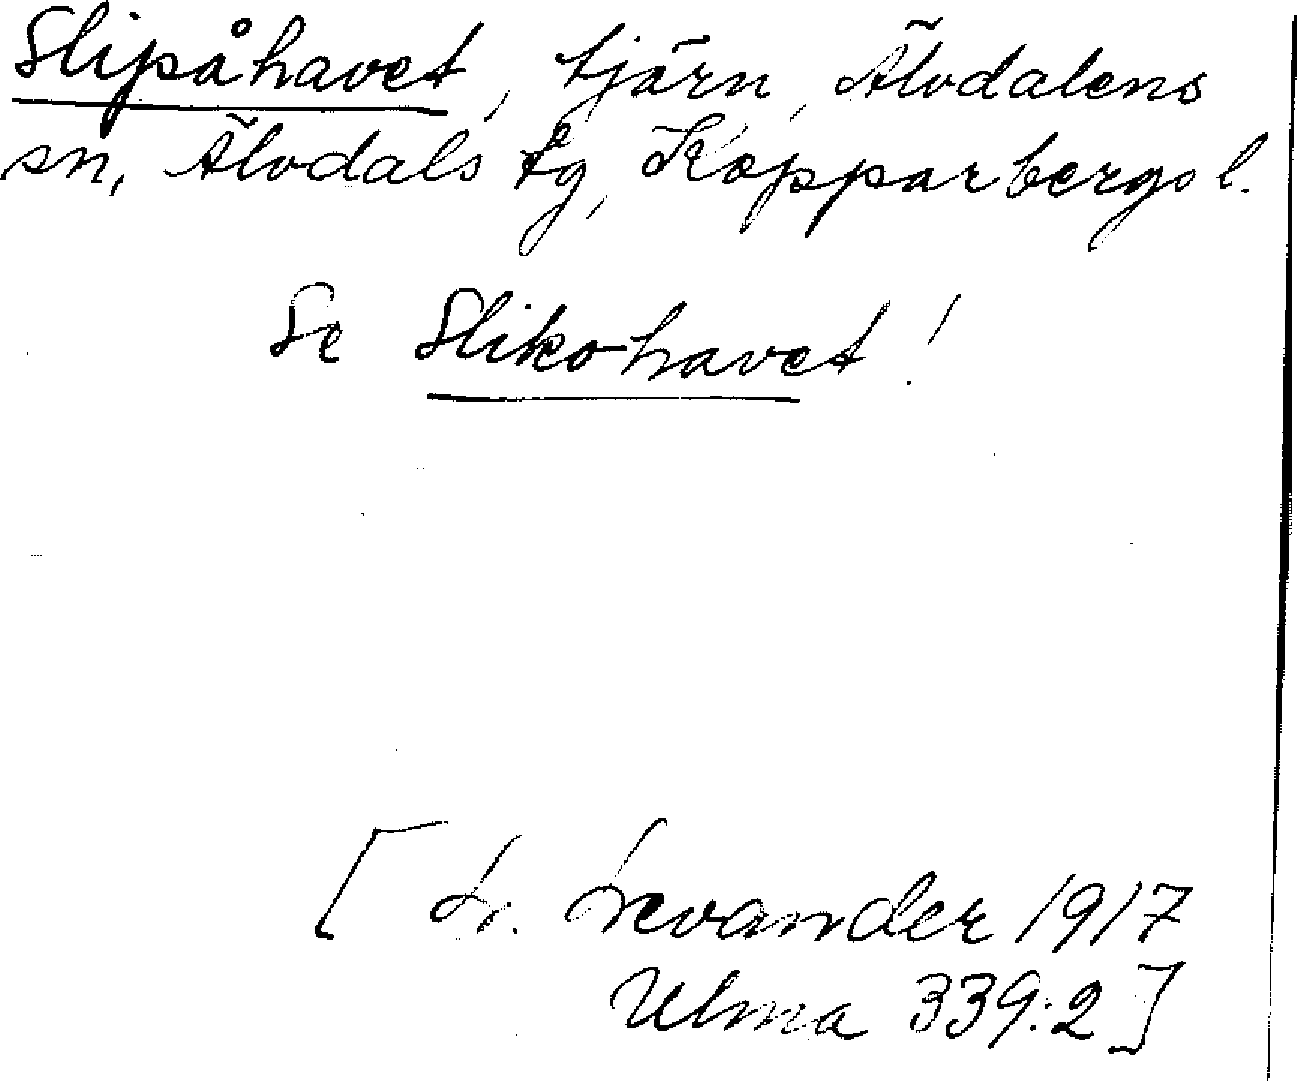 Slipåhavet, tjärn, Älvdalens
sn, Älvdals tg, Kopparbergs l.
Se Slikohavet!
[L. Levander 1917
Ulma 339:2]